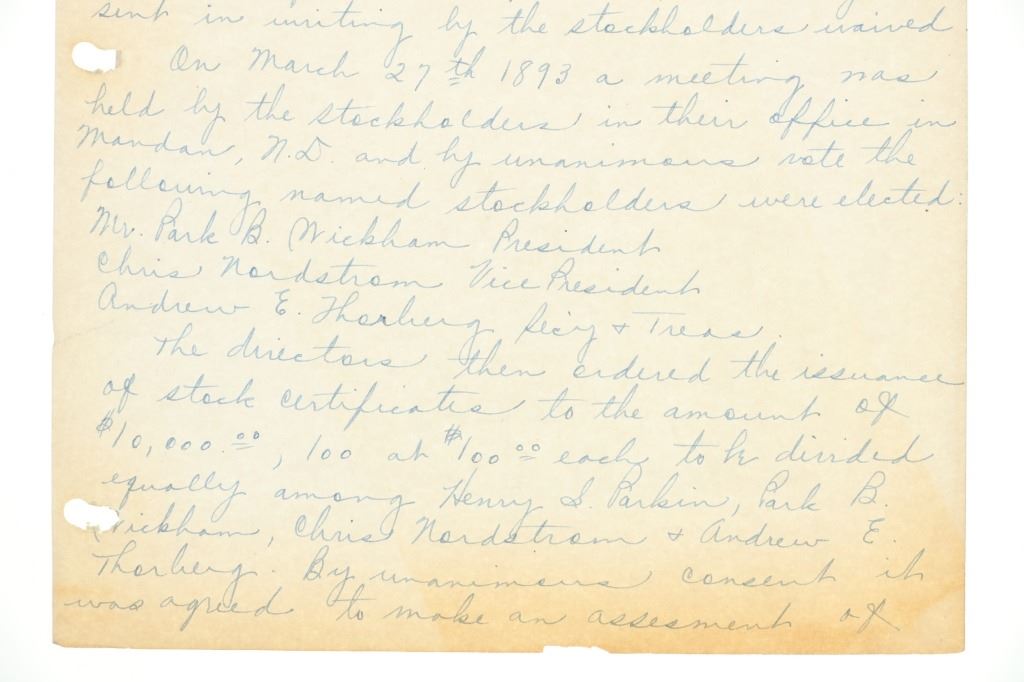 sent in writing by the stockholders waived
On March 27th 1893 a meeting was
held by the stockholders in their office in
Mandan, N.D. and by unanimous vote the
following named stockholders were elected:
Mr. Park B. Wickham President
Chris Nordstrom Vice President
Andrew E. Thorberg Secy + Treas.
The directors then ordered the issuance
of stock certificates to the amount of
$10,000.00, 100 at $100.00 each to be divided
equally among Henry S. Parkin, Park B.
Wickham, Chris Nordstrom + Andrew E.
Thorberg. By unanimous consent it
was agreed to make an assesment of